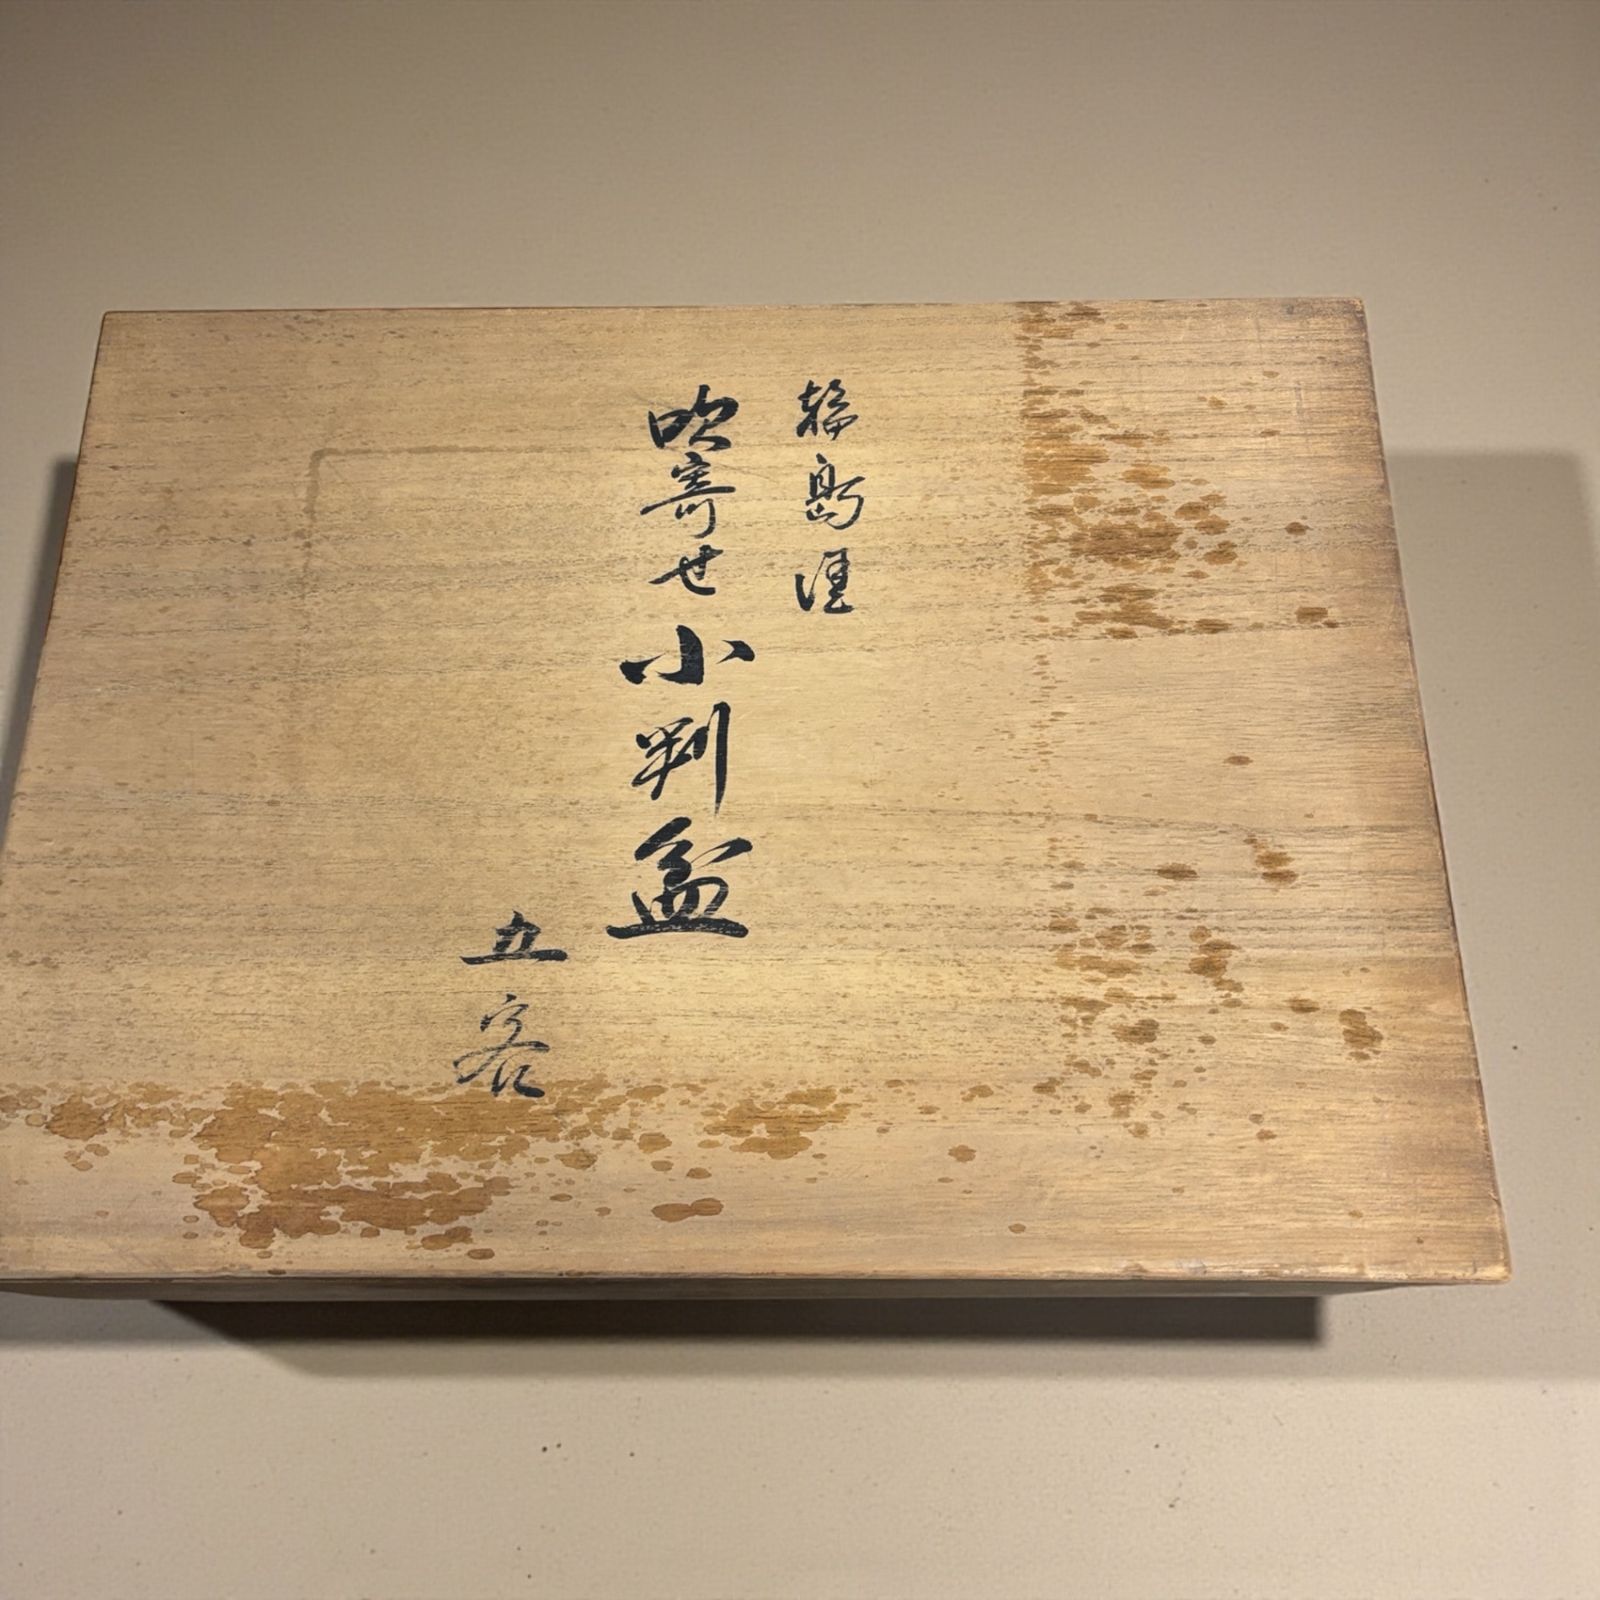 輪島塗
吹寄せ小判盆
五客